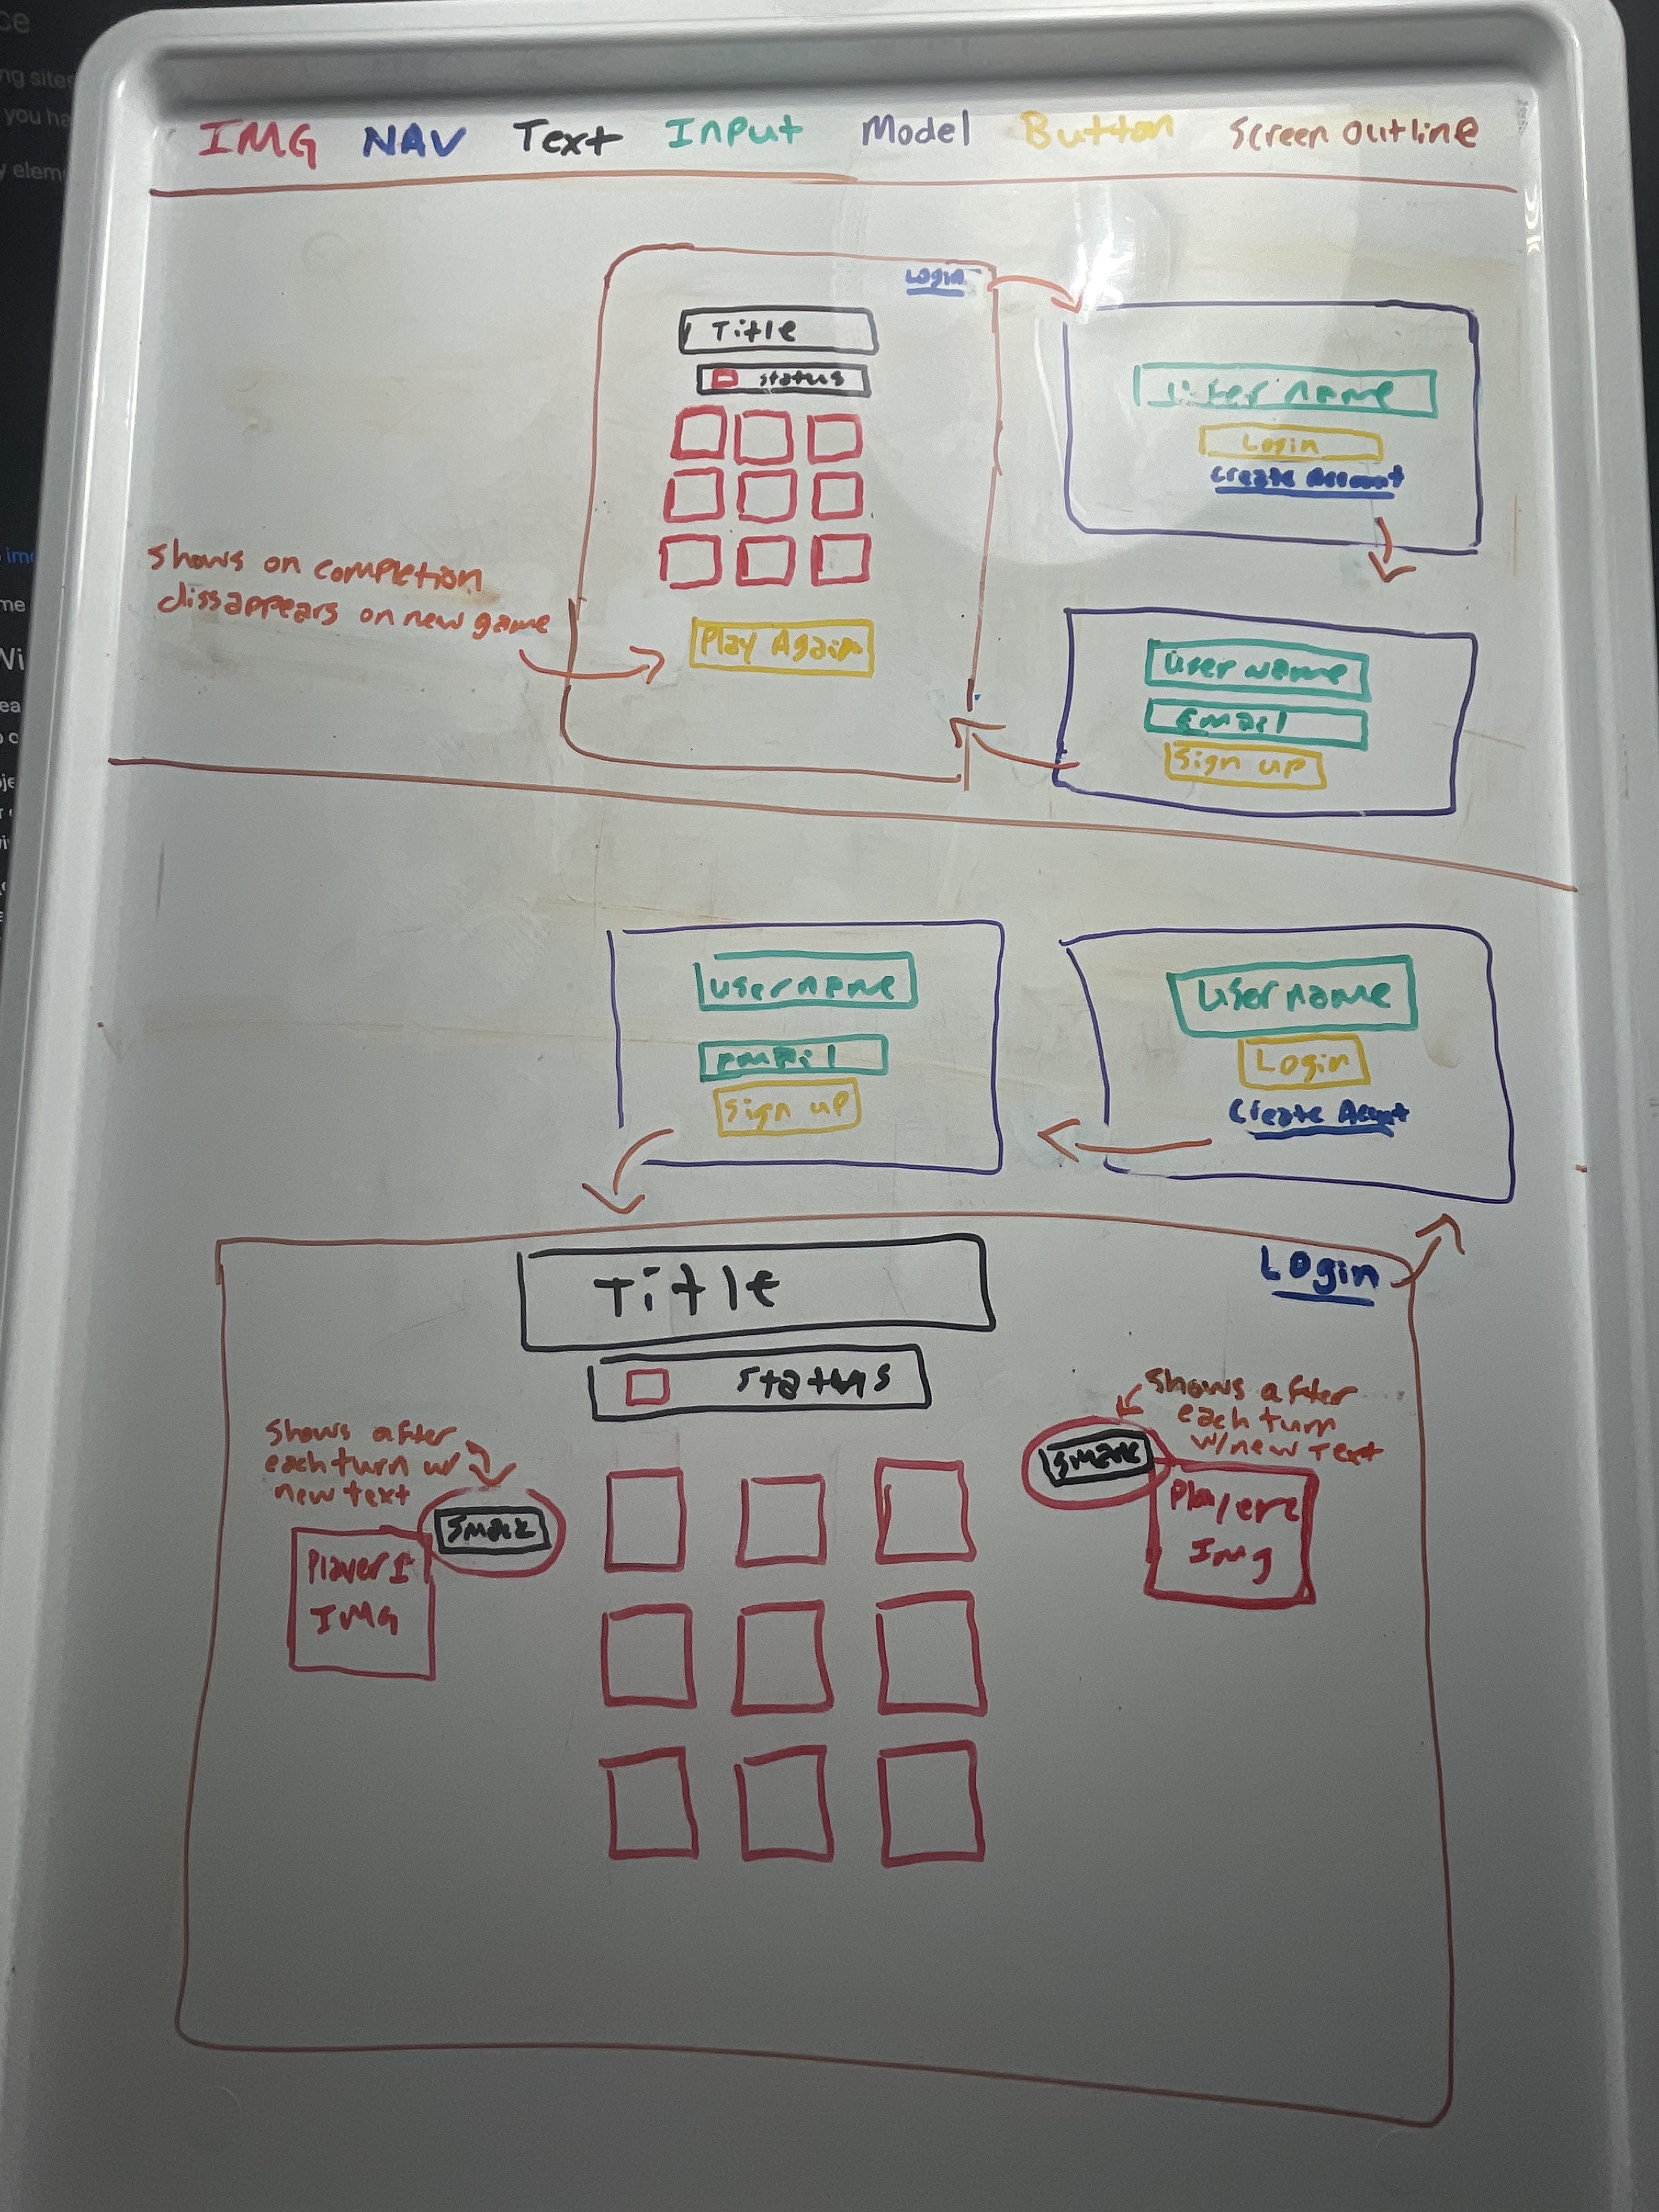 IMG NAV Text Input Model Button Screen Outline
Login
Title
status
Play Again
shows on completion
dissappears on new game
User name
Login
Create Account
User name
Email
Sign up
username
email
Sign up
User name
Login
Create
Title
Login
status
shows after
each turn w/
new text
Smack
Player 1
IMG
shows after
each turn
w/new Text
Smack
Player 2
Img